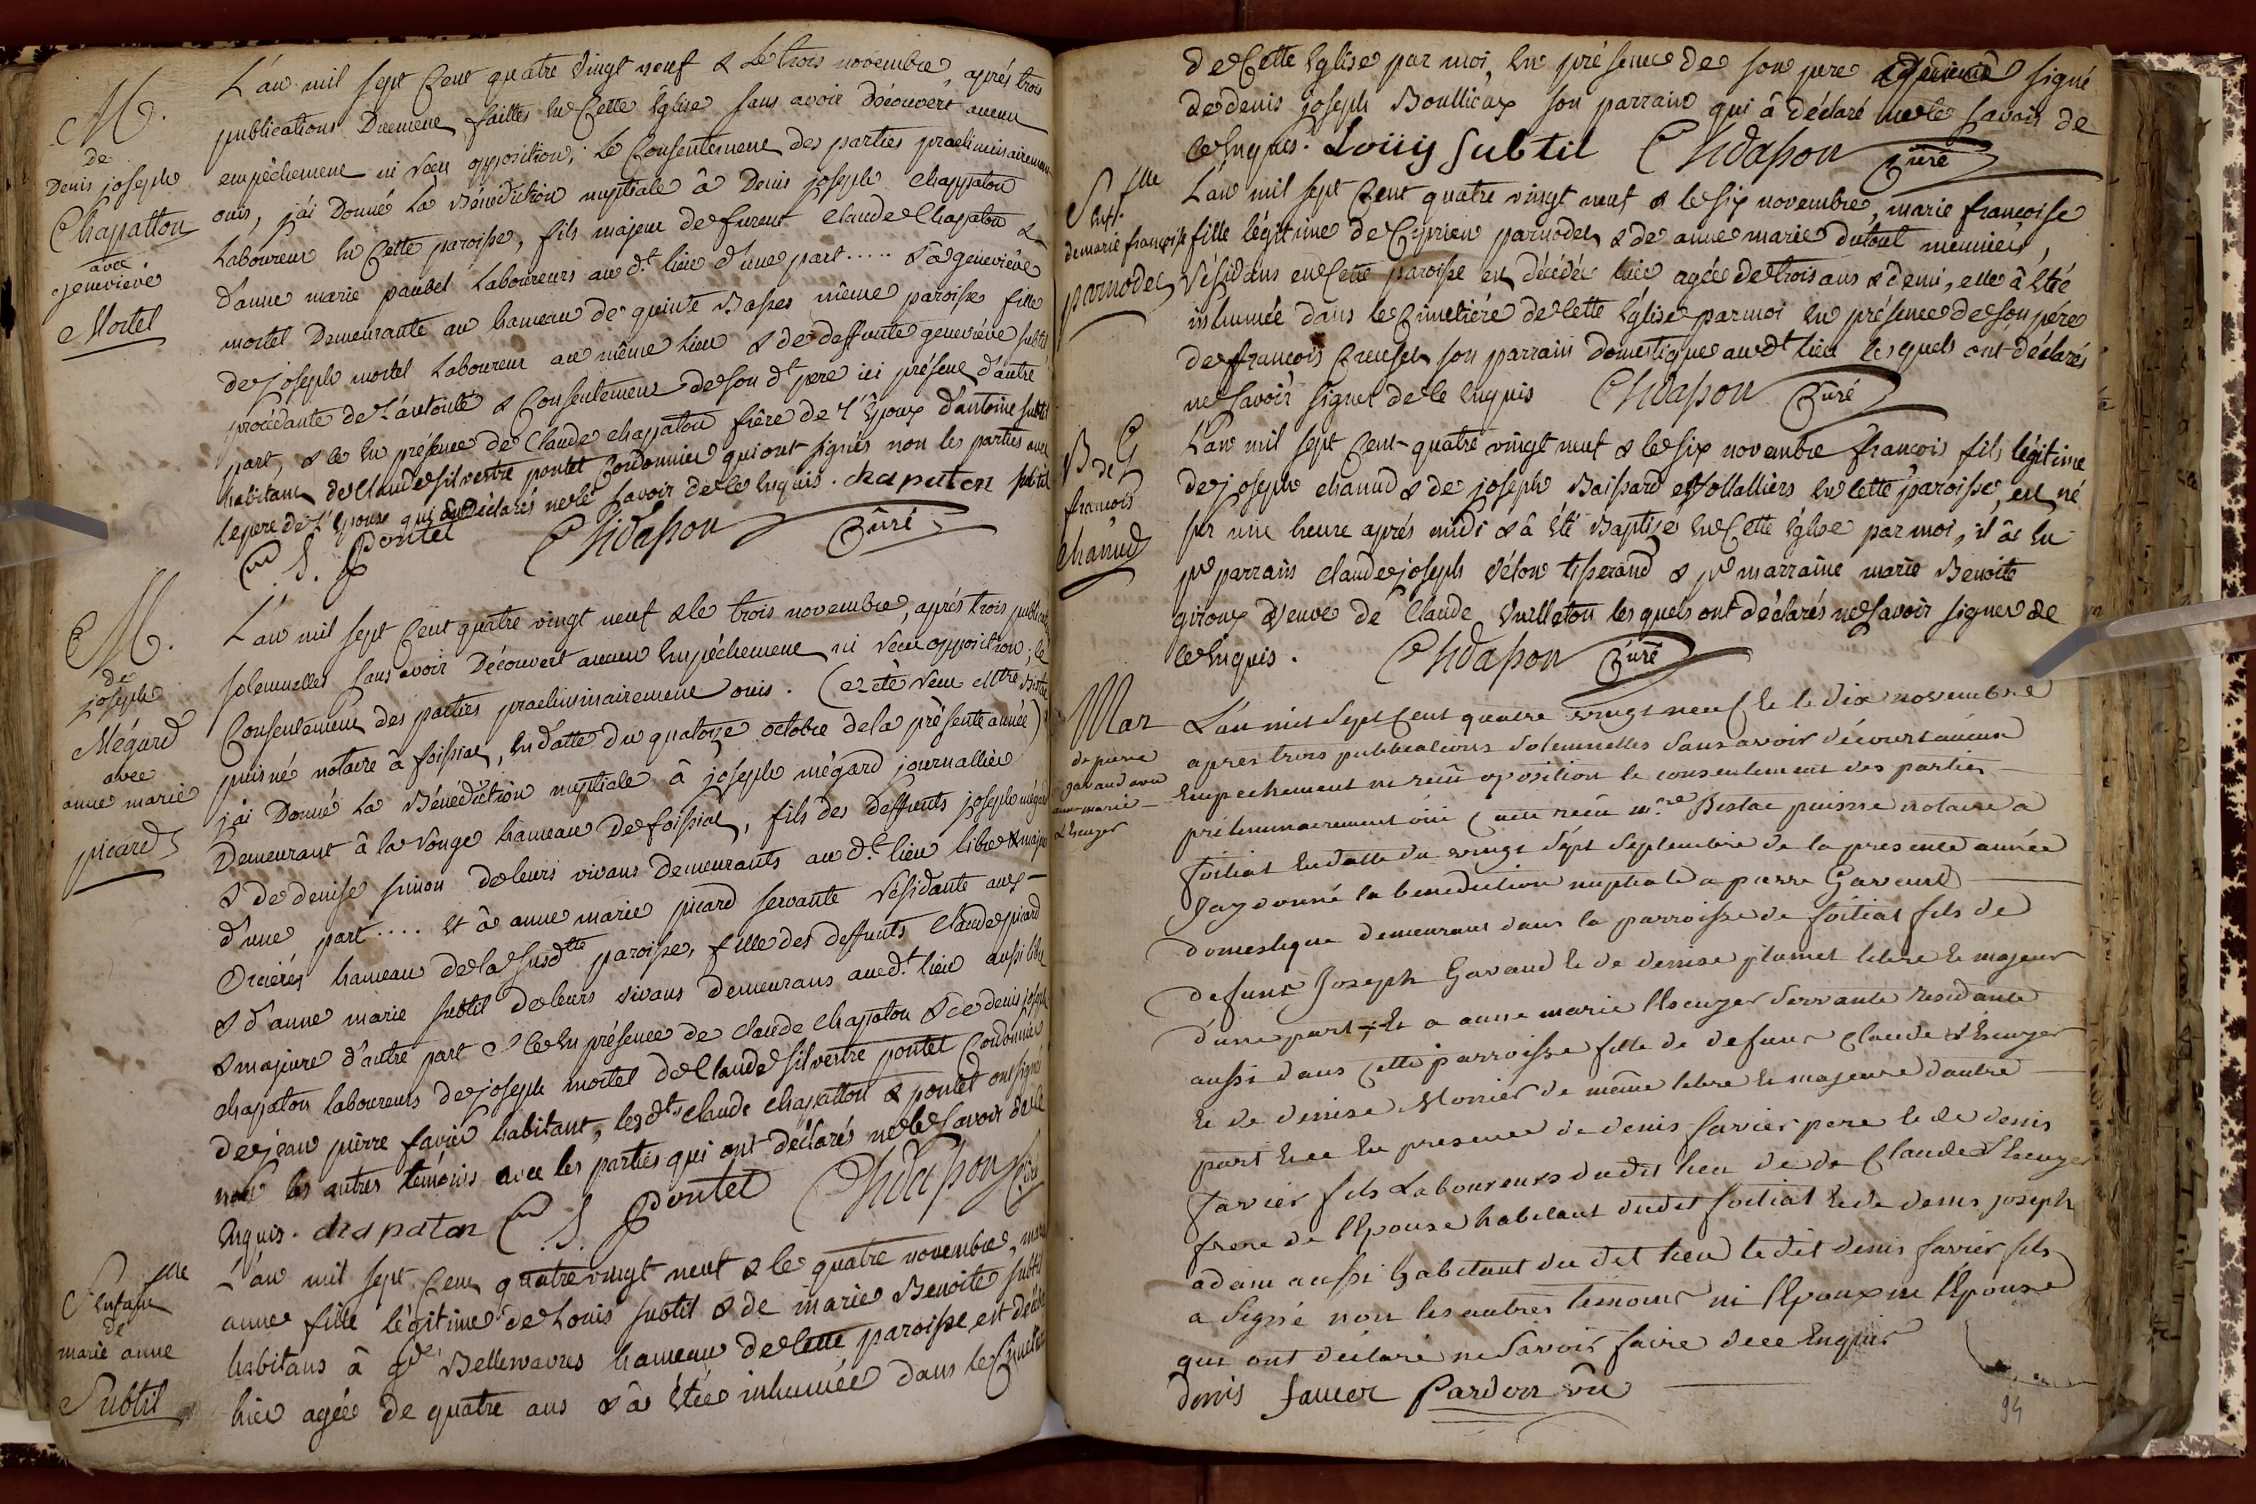 M.
de
Denis joseph
Chappatton
avec
genevieve
Mortel
L'an mil sept cent quatre vingt neuf & le trois novembre, aprés trois
publications duement faittes en cette Eglise sans avoir découvert aucun
empêchement ni reçu opposition, le consentement des parties praeliminairement
ouis, j'ai donné la Bénédiction nuptiale à Denis joseph chappaton
Laboureur en cette paroisse, fils majeur de furent claude Chappaton &
d'anne marie paubel Laboureurs au dt. lieu d'une part ..... & à geneviêve
mortel Demeurante au hameau de quinte Basses même paroisse fille
de joseph mortel Laboureur au même lieu & de deffunte genevieve subtil
procédante de L'autorité & consentement de son dt pere ici présent d'autre
part, & ce en présence de Claude chappaton frère de l'Epoux d'antoine subtil
habitant de Claude silvestre pontet Cordonnier qui ont signés non les parties avec
le pere de l'Epouse qui ont déclarés ne le savoir de ce Enquis. chapaton subtil
C. S. Pontet Chidapon Curé
M.
de
joseph
Mégard
avec
anne marie
picard
L'an mil sept cent quatre vingt neuf & le trois novembre, aprés trois publications
solemnelles sans avoir Découvert aucun Empêchement ni reçu opposition, le
consentement des parties praeliminairement ouis. (acte reçu Mtre
puisné notaire à foissiat, en datte du quatorze octobre de la présente année)
j'ai Donné La Bénédiction nuptiale à joseph mégard journallier
Demeurant à la Vonge hameau de foissiat, fils des deffunts joseph mégard
& de denise simon de leurs vivans demeurants au dt. lieu libre & majeur
d'une part .... et à anne marie picard servante résidante aux
Orcières hameau de la susdtte paroisse, fille des deffunts Claude picard
& d'anne marie subtil de leurs vivans demeurans au dt. lieu aussi libre
& majeure d'autre part & ce en présence de claude chappaton & de denis joseph
chappaton laboureurs de joseph mortel de Claude silvestre pontet Cordonnier
de jean pierre favier habitant, lesdts claude chappatton & pontet ont signé
non les autres témoins avec les parties qui ont déclarés ne le savoir de ce
Enquis. chapaton C. S. Pontet Chidapon Curé
Sre
Enfant
de
marie anne
Subtil
L'an mil sept cent quatre vingt neuf & le quatre novembre, marie
anne fille légitime de Louis subtil & de marie Benoite subtil
habitans à gd Bellevavres hameau de cette paroisse est décédée
hier agée de quatre ans & a Etée inhumée dans le Cimetière
de Cette Eglise par moi, en présence de son pere signé
de denis joseph Boullicaux son parrain qui à déclaré ne le savoir de
ce Enquis. Loüis Subtil Chidapon Curé
Sre
Enf.
de marie françoise
parnodet
L'an mil sept cent quatre vingt neuf & le six novembre, marie françoise
fille légitime de Cyprien parnodet & de anne marie dutout meunier,
résidans en cette paroisse est décédée hier agée de trois ans & demi, elle à été
inhumée dans le Cimetière de cette Eglise par moi en présence de son père
de françois Creuset son parrain domestique audt lieu lesquels ont déclarés
ne savoir signer de ce Enquis Chidapon Curé
B G
de
françois
chanud
L'an mil sept cent quatre vingt neuf & le six novembre françois fils légitime
de joseph chanud & de joseph Baissard en cette paroisse, est né
sur une heure aprés midi & à été Baptisé en cette Eglise par moi, il a eu
pr parrain claude joseph tisserand & pr marraine marie Benoite
giroux veuve de Claude Vuilleton lesquels ont déclarés ne savoir signer de
ce Enquis. Chidapon Curé
Mar
de pierre
gavaud avec
anne marie
Lhenyer
L'an mil sept cent quatre vingt neuf et le dix novembre
apres trois publications solemnelles sans avoir découvert aucun
Empechement ni reçu oposition le consentement des parties
préliminairement ouï (acte reçu mtre puisné notaire a
foitiat en datte du vingt sept septembre de la presente année
Jay donné la benediction nuptiale a pierre Gavaud
domestique demeurant dans la parroisse de foitiat fils de
defunt Joseph Gavaud et de denise plumet libre et majeur
d'une part; Et a anne marie servante residante
aussi dans cette parroisse fille de defunt Claude
et de denise Monier de même libre et majeure d'autre
part Et ce En presence de denis favier pere et de denis
favier fils Laboureurs dudit lieu de Claude
frere de l'Epouse habitant dudit foitiat et de denis joseph
adam aussi habitant du dit lieu le dit denis favier fils
a signé non les autres temoins ni l'Epoux ni l'Epouse
qui ont déclaré ne savoir faire de ce Enquis
denis favier Pardon vic
94